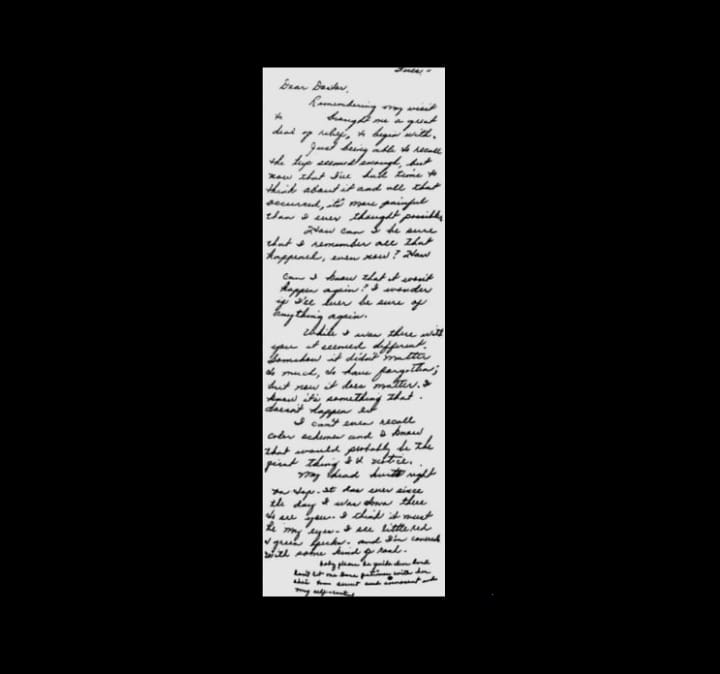 Dear Doctor,
Remembering my visit
to brought me a great
deal of relief, to begin with.
Just being able to recall
the trip seemed enough, but
now that I've had time to
think about it and all that
occurred, it's more painful
than I ever thought possible.
How can I be sure
that I remember all that
happened, even now? How
can I know that it won't
happen again? I wonder
if I'll ever be sure of
anything again.
While I was there with
you it seemed different.
Somehow it didn't matter
so much, to have forgotten;
but now it does matter. I
know it's something that
doesn't happen
I can't even recall
color schemes and I know
that would probably be the
first thing I'd notice.
My head hurts right
on top. It has ever since
the day I was down there
to see you. I think it must
be my eyes. I see little red
& green specks. and I'm covered
with some kind of rash.
baby please be quiet dear lord
don't let me lose patience with her
she's too sweet and innocent and
my self-control